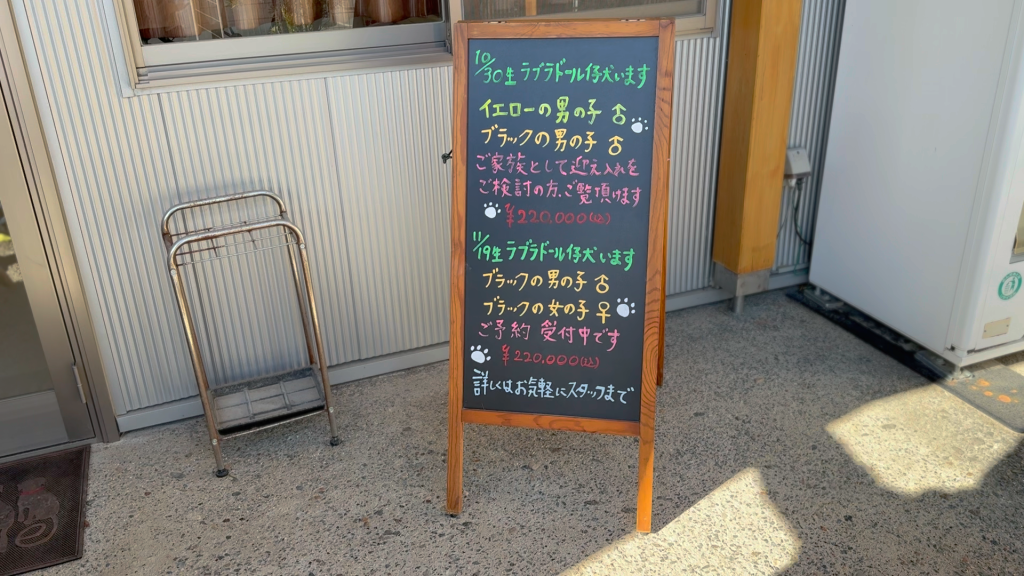 10/30生 ラブラドール仔犬います
イエローの男の子 ♂
ブラックの男の子 ♂
ご家族として迎え入れを
ご検討の方、ご覧頂けます
¥220,000(込)
11/19生 ラブラドール仔犬います
ブラックの男の子 ♂
ブラックの女の子 ♀
ご予約 受付中です
¥220,000(込)
詳しくはお気軽にスタッフまで